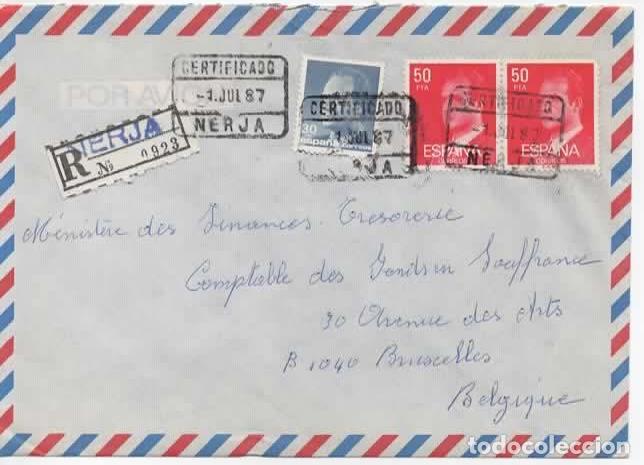 CERTIFICADO
-1.JUL 87
NERJA
POR AVION
R NERJA
No 0923
30
españa
CORREOS
CERTIFICADO
-1.JUL 87
NERJA
50
PTA
ESPAÑA
CORREOS
50
PTA
ESPAÑA
CORREOS
CERTIFICADO
-1.JUL 87
NERJA
Ménistère des Finances. Tresorerie
Comptable des Fonds en Souffrance
30 Avenue des Arts
B 1040 Bruxelles
Belgique
todocoleccion